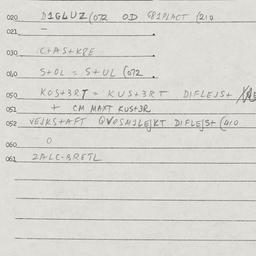 020 DIGLUZ(072 OD 981PLACT (210
021 —
030 C+AS+KRE
040 S+OL = S+UL (072
050 KOS+3RT = KUS+3RT DIFLEJS+
051 + CM MAXT KUS+3R
052 VEJKS+AFT QVOSMJLEJKT DIFLEJS+ (410
060 0
061 2ALC-BRETL